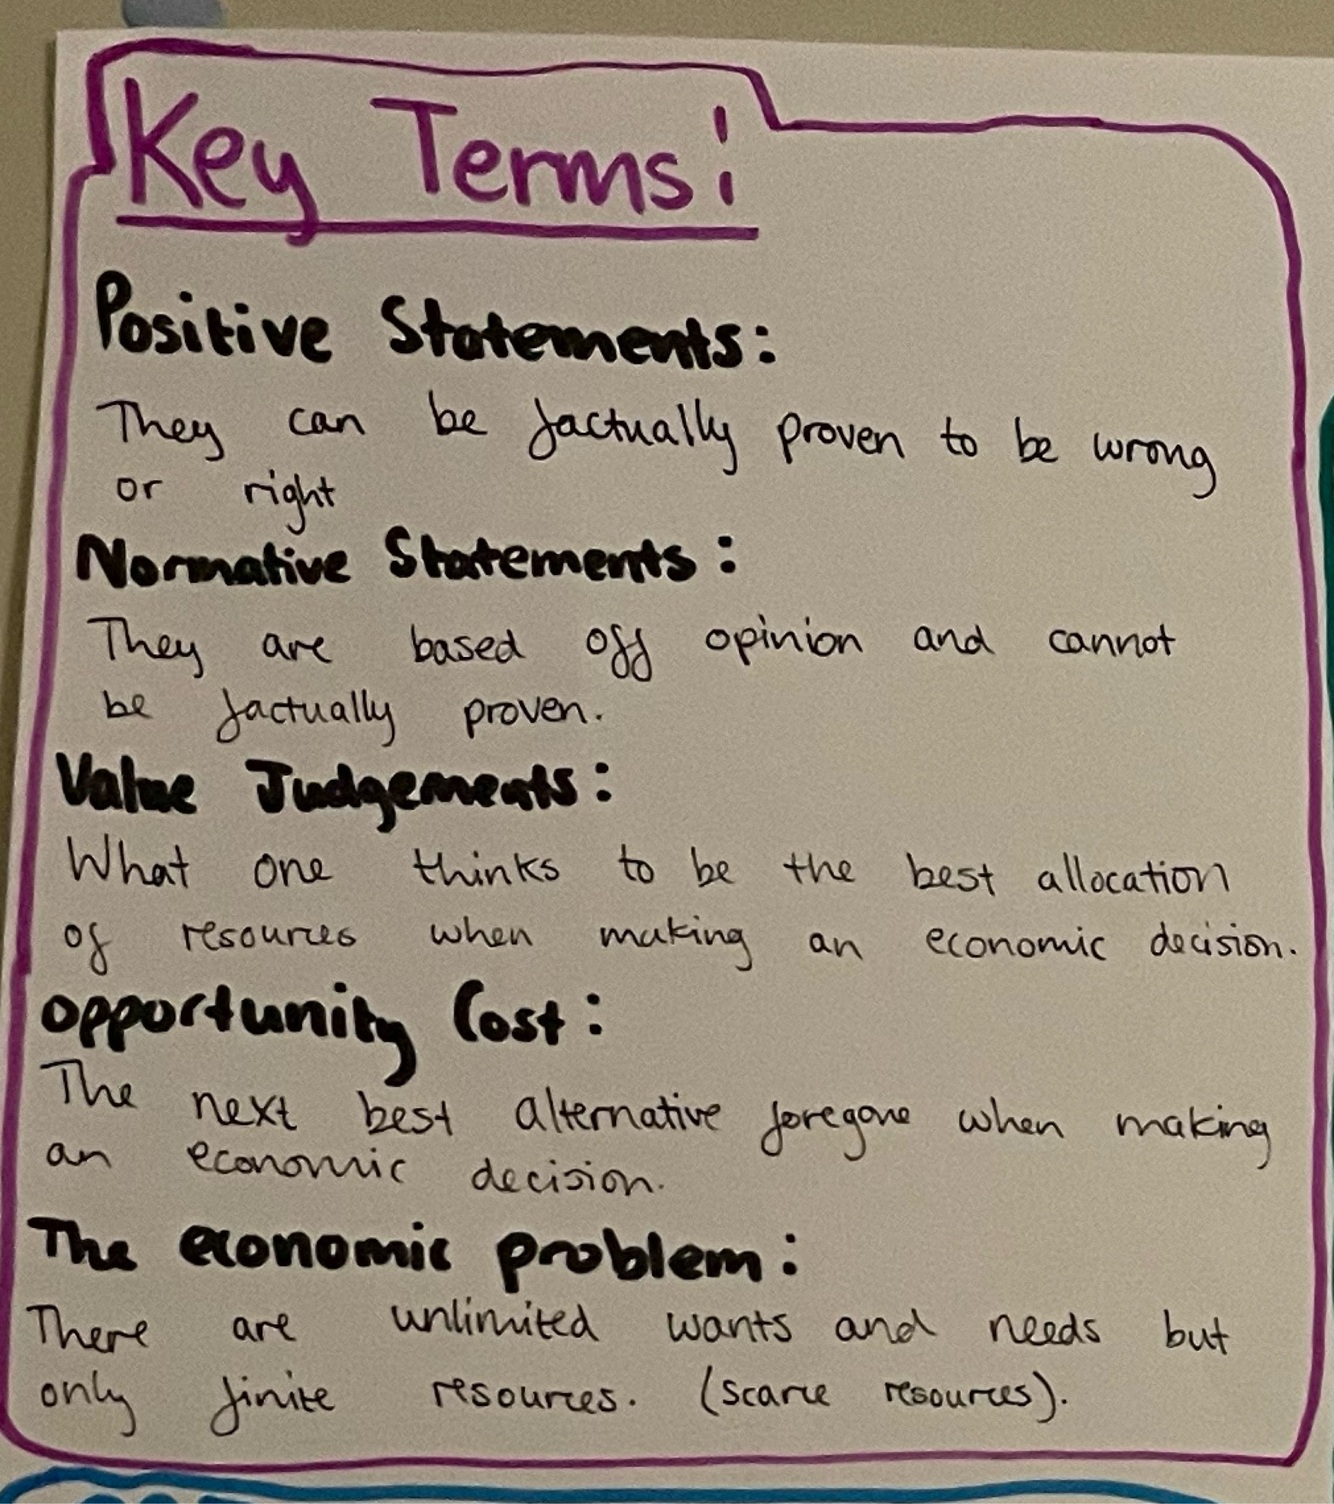 Key Terms:
Positive Statements:
They can be factually proven to be wrong
or right
Normative Statements:
They are based off opinion and cannot
be factually proven.
Value Judgements:
What one thinks to be the best allocation
of resources when making an economic decision.
opportunity Cost:
The next best alternative foregone when making
an economic decision.
The economic problem:
There are unlimited wants and needs but
only finite resources. (scarce resources).